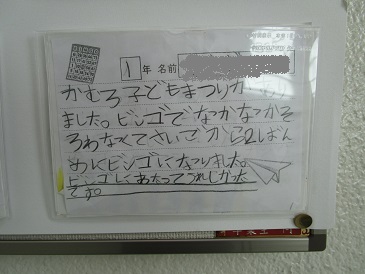 1年 名前
かむろ子どもまつりが
ました。ビンゴでなかなかそ
ろわなくてさいごから2ばん
めくビンゴしくなりました。
ビンゴしくあたってうれしかった
です。